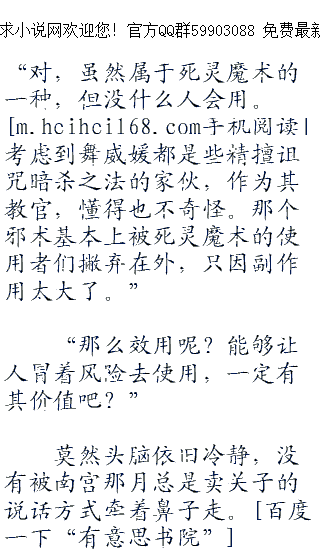 求小说网欢迎您！官方QQ群59903088 免费最新
“对，虽然属于死灵魔术的
一种，但没什么人会用。
[m.hcihci168.com手机阅读|
考虑到舞威媛都是些精擅诅
咒暗杀之法的家伙，作为其
教官，懂得也不奇怪。那个
邪术基本上被死灵魔术的使
用者们撇弃在外，只因副作
用太大了。”
“那么效用呢？能够让
人冒着风险去使用，一定有
其价值吧？”
莫然头脑依旧冷静，没
有被南宫那月总是卖关子的
说话方式牵着鼻子走。[百度
一下“有意思书院”]